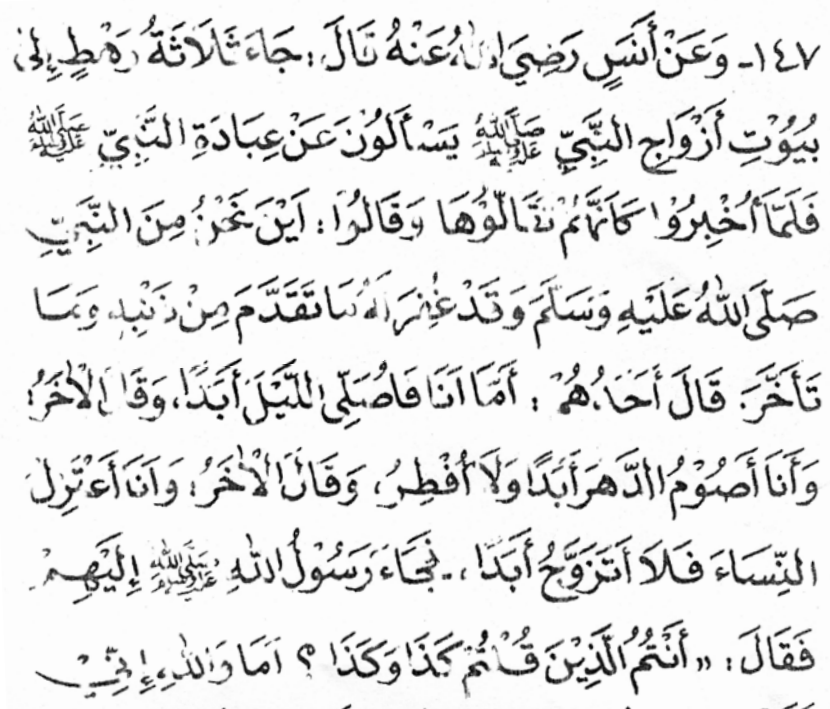 ١٤٧ـ وَعَنْ أَنَسٍ رَضِيَ اللهُ عَنْهُ قَالَ: جَاءَ ثَلَاثَةُ رَهْطٍ إِلَى
بُيُوْتِ أَزْوَاجِ النَّبِيِّ ﷺ يَسْأَلُوْنَ عَنْ عِبَادَةِ النَّبِيِّ ﷺ
فَلَمَّا أُخْبِرُوْا كَأَنَّهُمْ تَقَالُّوْهَا وَقَالُوْا: اَيْنَ نَحْنُ مِنَ النَّبِيِّ
صَلَّى اللهُ عَلَيْهِ وَسَلَّمَ وَقَدْ غُفِرَ لَهُ مَا تَقَدَّمَ مِنْ ذَنْبِهِ وَمَا
تَأَخَّرَ. قَالَ أَحَدُهُمْ: أَمَّا اَنَا فَاُصَلِّى اللَّيْلَ أَبَدًا، وَقَالَ الْاٰخَرُ:
وَأَنَا أَصُوْمُ الدَّهْرَ أَبَدًا وَلَا أُفْطِرُ، وَقَالَ الْاٰخَرُ: وَاَنَا أَعْتَزِلُ
النِّسَاءَ فَلَا اَتَزَوَّجُ أَبَدًا، ـ فَجَاءَ رَسُوْلُ اللهِ ﷺ إِلَيْهِمْ
فَقَالَ: «أَنْتُمُ الَّذِيْنَ قُلْتُمْ كَذَا وَكَذَا؟ اَمَا وَاللهِ إِنِّيْ